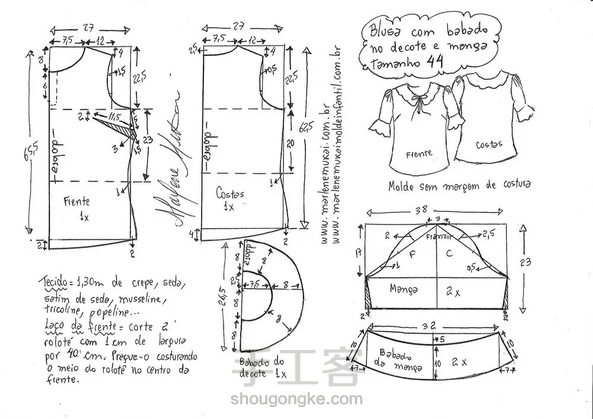 Blusa com babado
no decote e manga
tamanho 44
Frente
Costas
Molde sem margem de costura
27
7,5
12
4
8
6
1,5
22,5
2
11,5
3
23
dobra
1
Frente
1x
65,5
2
2
27
7,5
12
4
2,5
22,5
20
62,5
dobra
1
Costas
1x
4
2
www.marlenemukai.com.br
www.marlenemukaimoldeinfantil.com.br
38
3
2
Franzir
2,5
F
C
23
Manga
2x
32
5
10
10
10
7
7
Babado
da manga
2x
dobra
8
7,5
8
8
8
26,5
Babado do
decote 1x
Tecido = 1,30m de crepe, seda,
satim de seda, musseline,
tricoline, popeline...
Laço da frente = corte 2
rolotê com 1 cm de largura
por 40 cm. Pregue-o costurando
o meio do rolotê no centro da
frente.
手工客
shougongke.com